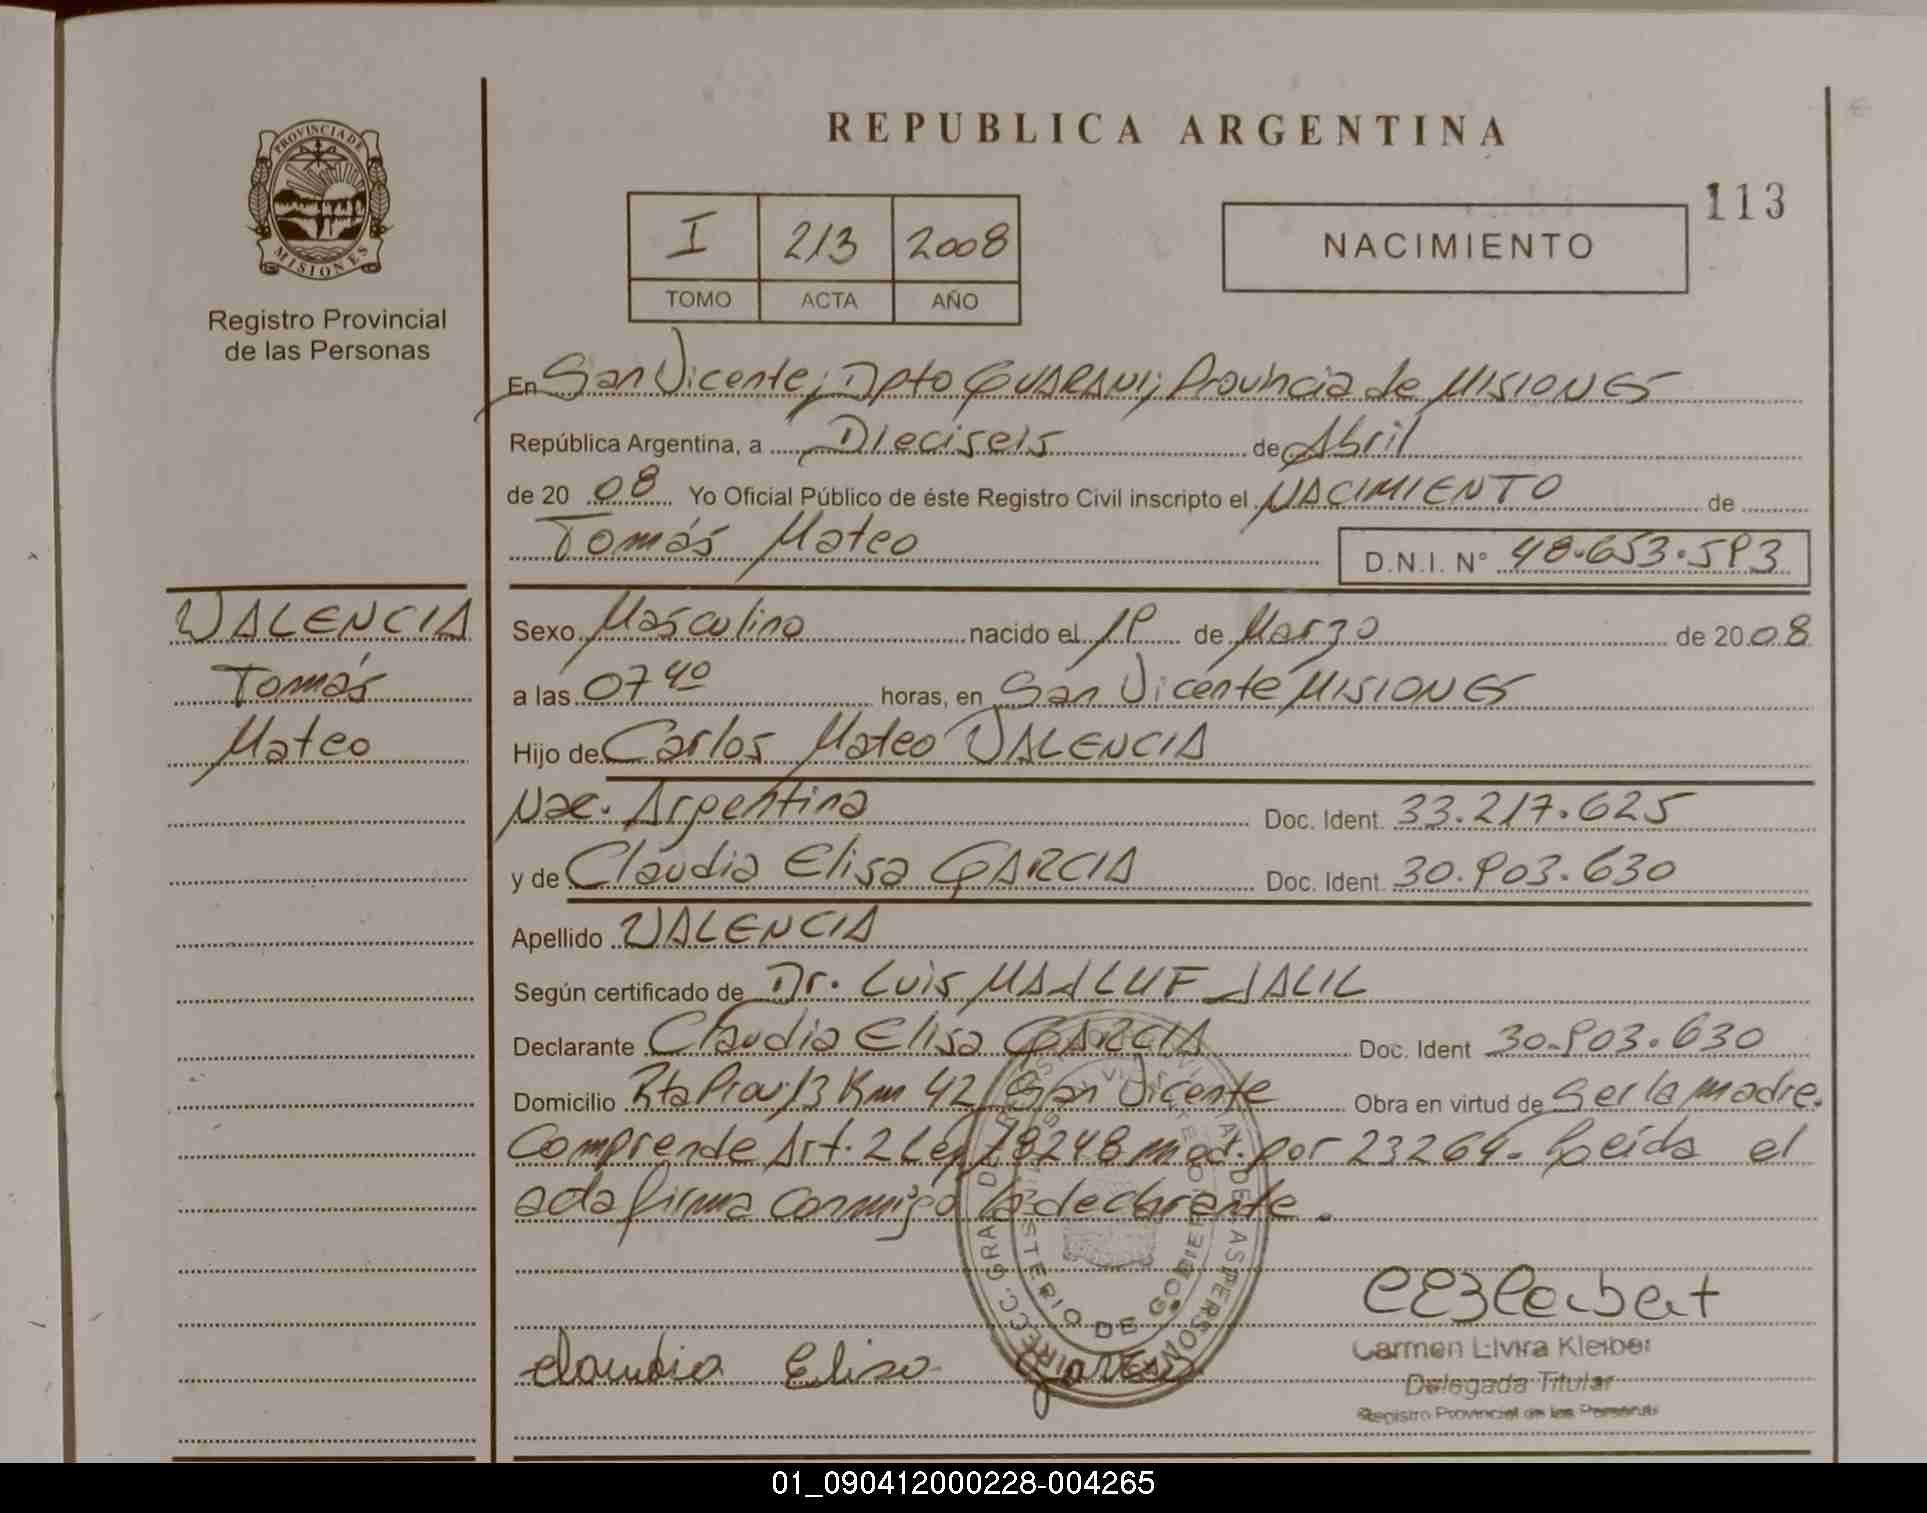 REPUBLICA ARGENTINA
113
PROVINCIA DE
MISIONES
Registro Provincial
de las Personas
I 213 2008
TOMO ACTA AÑO
NACIMIENTO
En San Vicente; Dpto GUARANI; Provincia de MISIONES
República Argentina, a Dieciseis de Abril
de 20 08 Yo Oficial Público de éste Registro Civil inscripto el NACIMIENTO de
Tomás Mateo D.N.I. N° 48.653.593
VALENCIA
Tomás
Mateo
Sexo Masculino nacido el 19 de Marzo de 2008
a las 07 40 horas, en San Vicente MISIONES
Hijo de Carlos Mateo VALENCIA
Nac. Argentina Doc. Ident. 33.217.625
y de Claudia Elisa GARCIA Doc. Ident. 30.903.630
Apellido VALENCIA
Según certificado de Dr. Luis MAALUF JALIL
Declarante Claudia Elisa GARCIA Doc. Ident 30.903.630
Domicilio Rta Prov. 13 Km 42 San Vicente Obra en virtud de Ser la madre.
Comprende Art. 2 Ley 18248 mod. por 23264. Leída el
acta firma conmigo la declarante.
MINISTERIO DE GOBIERNO
Claudia Elisa Garcia
Carmen Elvira Kleiber
Delegada Titular
Registro Provincial de las Personas
01_090412000228-004265